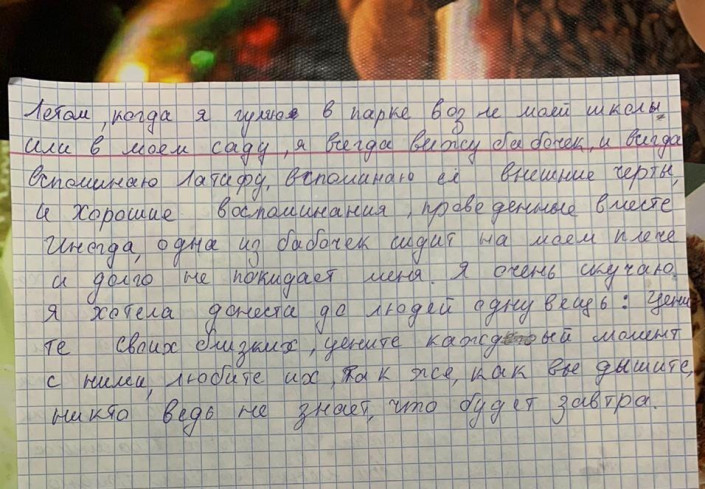 Летом, когда я гуляю в парке воз ле моей школы
или в моем саду, я всегда вижу бабочек, и всегда
вспоминаю Латафу, вспоминаю её внешние черты,
и хорошие воспоминания, проведенные вместе
Иногда, одна из бабочек сидит на моем плече
и долго не покидает меня. Я очень скучаю.
Я хотела донести до людей одну вещь: Цени
те своих близких, цените каждый момент
с ними, любите их, так же, как вы дышите,
никто ведь не знает, что будет завтра.